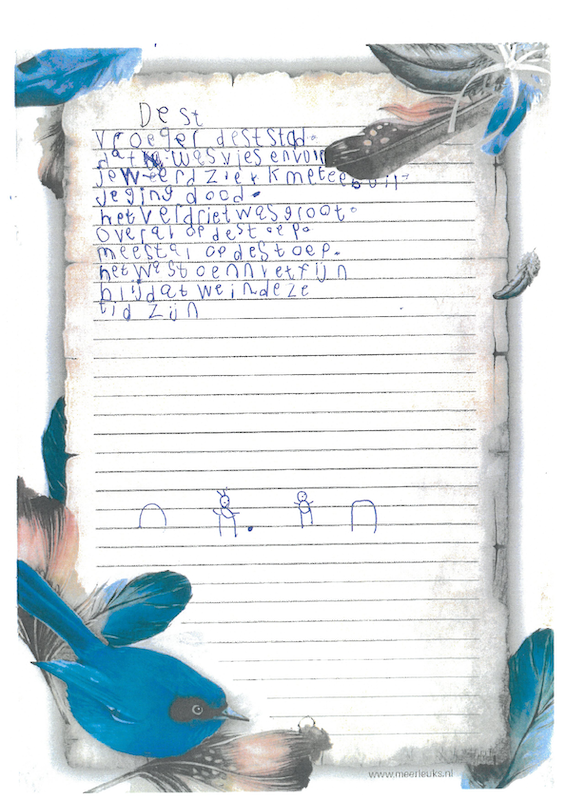 Dest
vroeger de st stad.
dat was vjes en
je weerd zierk met
je ging dood.
het verdriet was groot.
overal op de st oep.
meestal op de stoep.
het was toen niet fijn
blij dat we in deze
tid zijn
www.meerleuks.nl